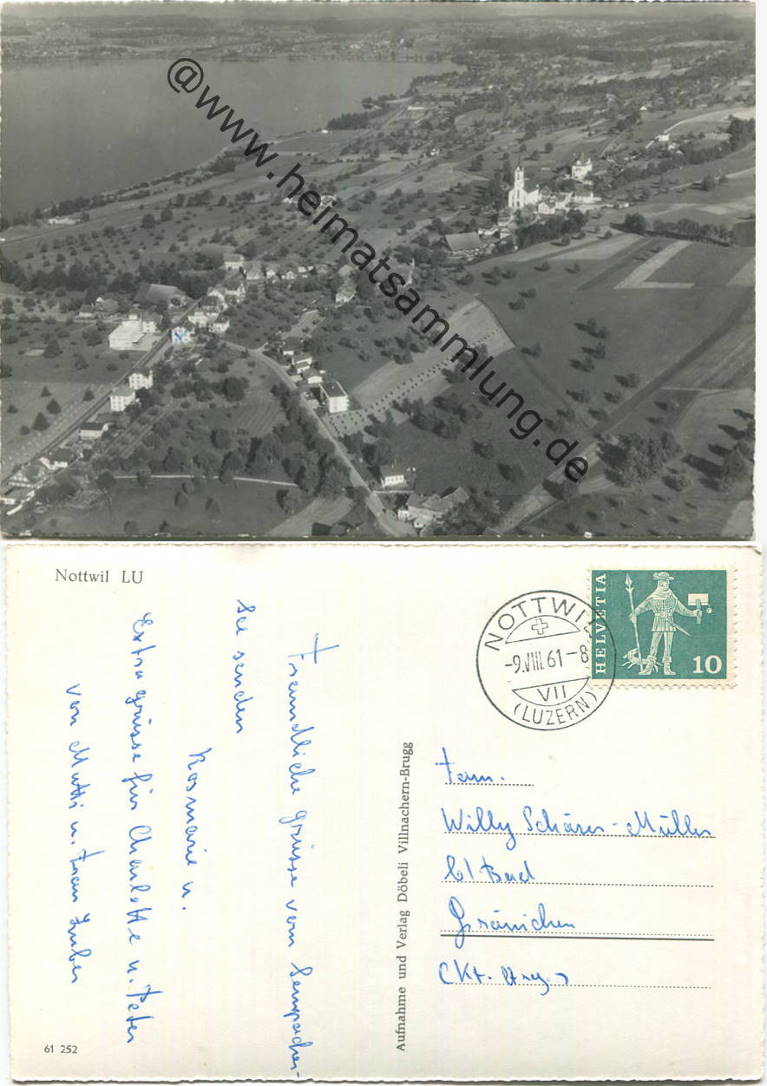 @www.heimatsammlung.de
Nottwil LU
NOTTWIL
-9.VIII.61-8
VII
(LUZERN)
HELVETIA
10
Freundliche grüsse vom Sempacher-
See senden
Rosmarie u.
Extra grüsse für Charlotte u. Peter
von Mutti u. Frau Huber
Aufnahme und Verlag Döbeli Villnachern-Brugg
Fam.
Willy Schärer-Müller
b/ Bad
Gränichen
Kt. Arg.
61 252